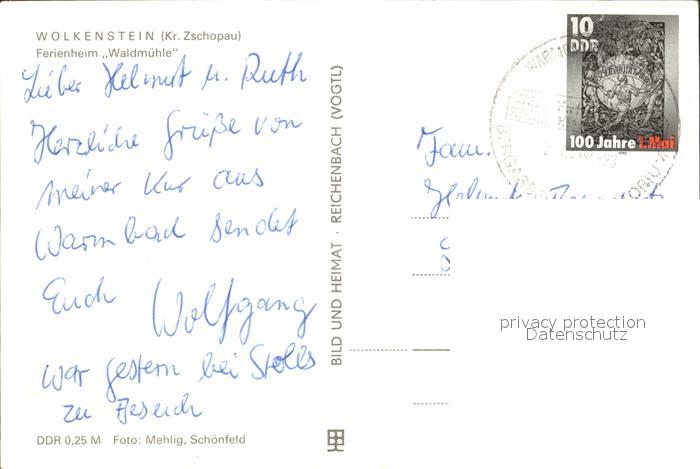 WOLKENSTEIN (Kr. Zschopau)
Ferienheim „Waldmühle“
Lieber Helmut u. Ruth
Herzliche Grüße von
meiner Kur aus
Warmbad sendet
Euch Wolfgang
war gestern bei Stolls
zu Besuch
DDR 0,25 M Foto: Mehlig, Schönfeld
BILD UND HEIMAT · REICHENBACH (VOGTL)
10
DDR
100 Jahre 1. Mai
Fam.
Helmut
privacy protection
Datenschutz